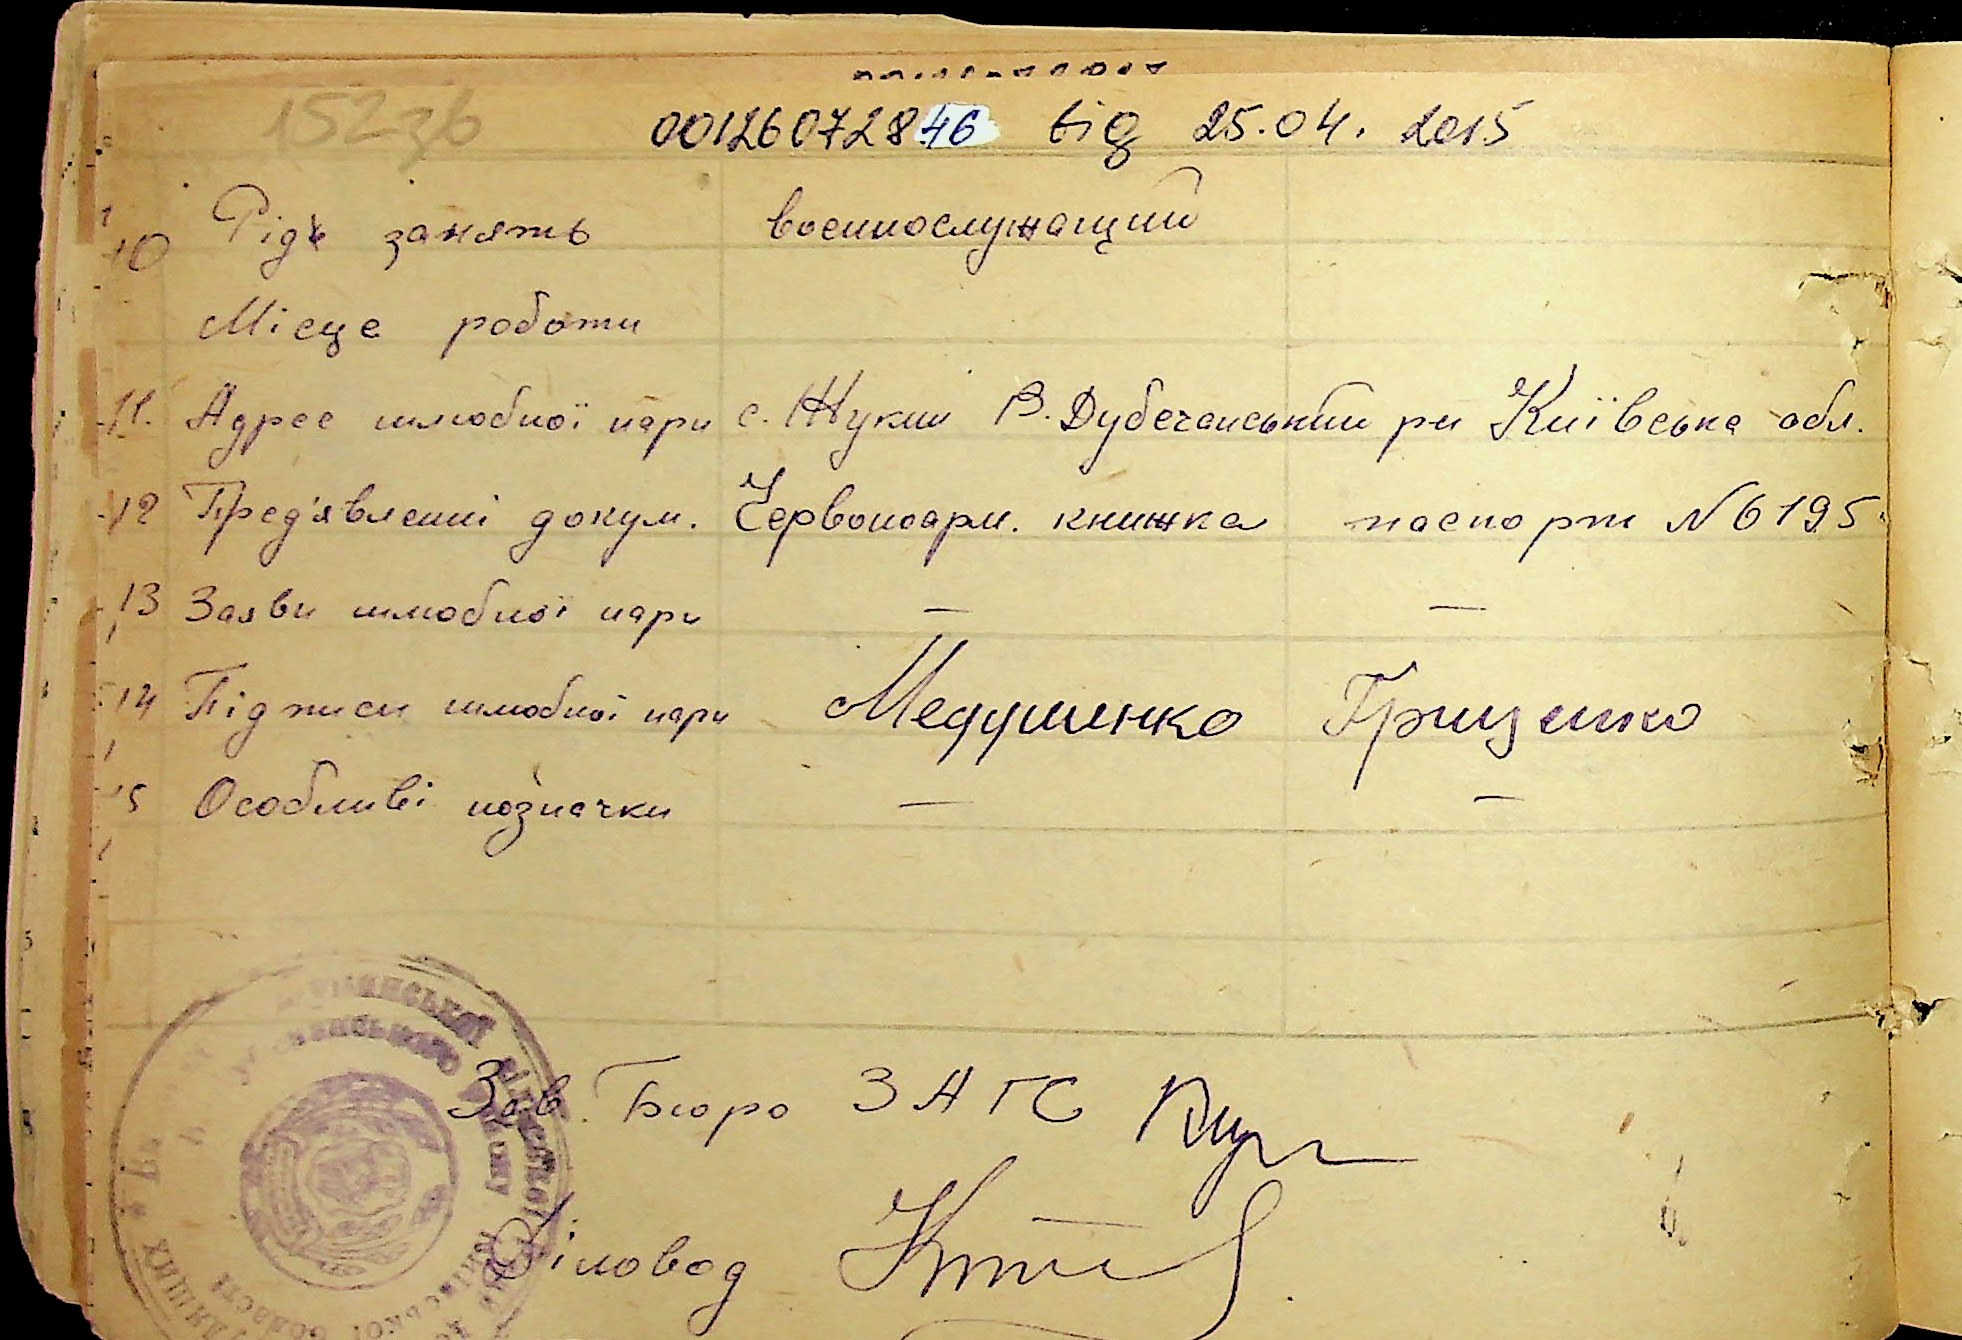 152зв
00126072846 від 25.04.2015
10 Рід занять военнослужащий
Місце роботи
11. Адрес шлюбної пари с. Жукин В. Дубечанський рн Київська обл.
12 Пред'явленні докум. Червоноарм. книжка паспорт №6195
13 Заяви шлюбної пари — —
14 Підписи шлюбної пари Медушенко Грищенко
15 Особливі позначки — —
Зав. Бюро ЗАГС
Діловод